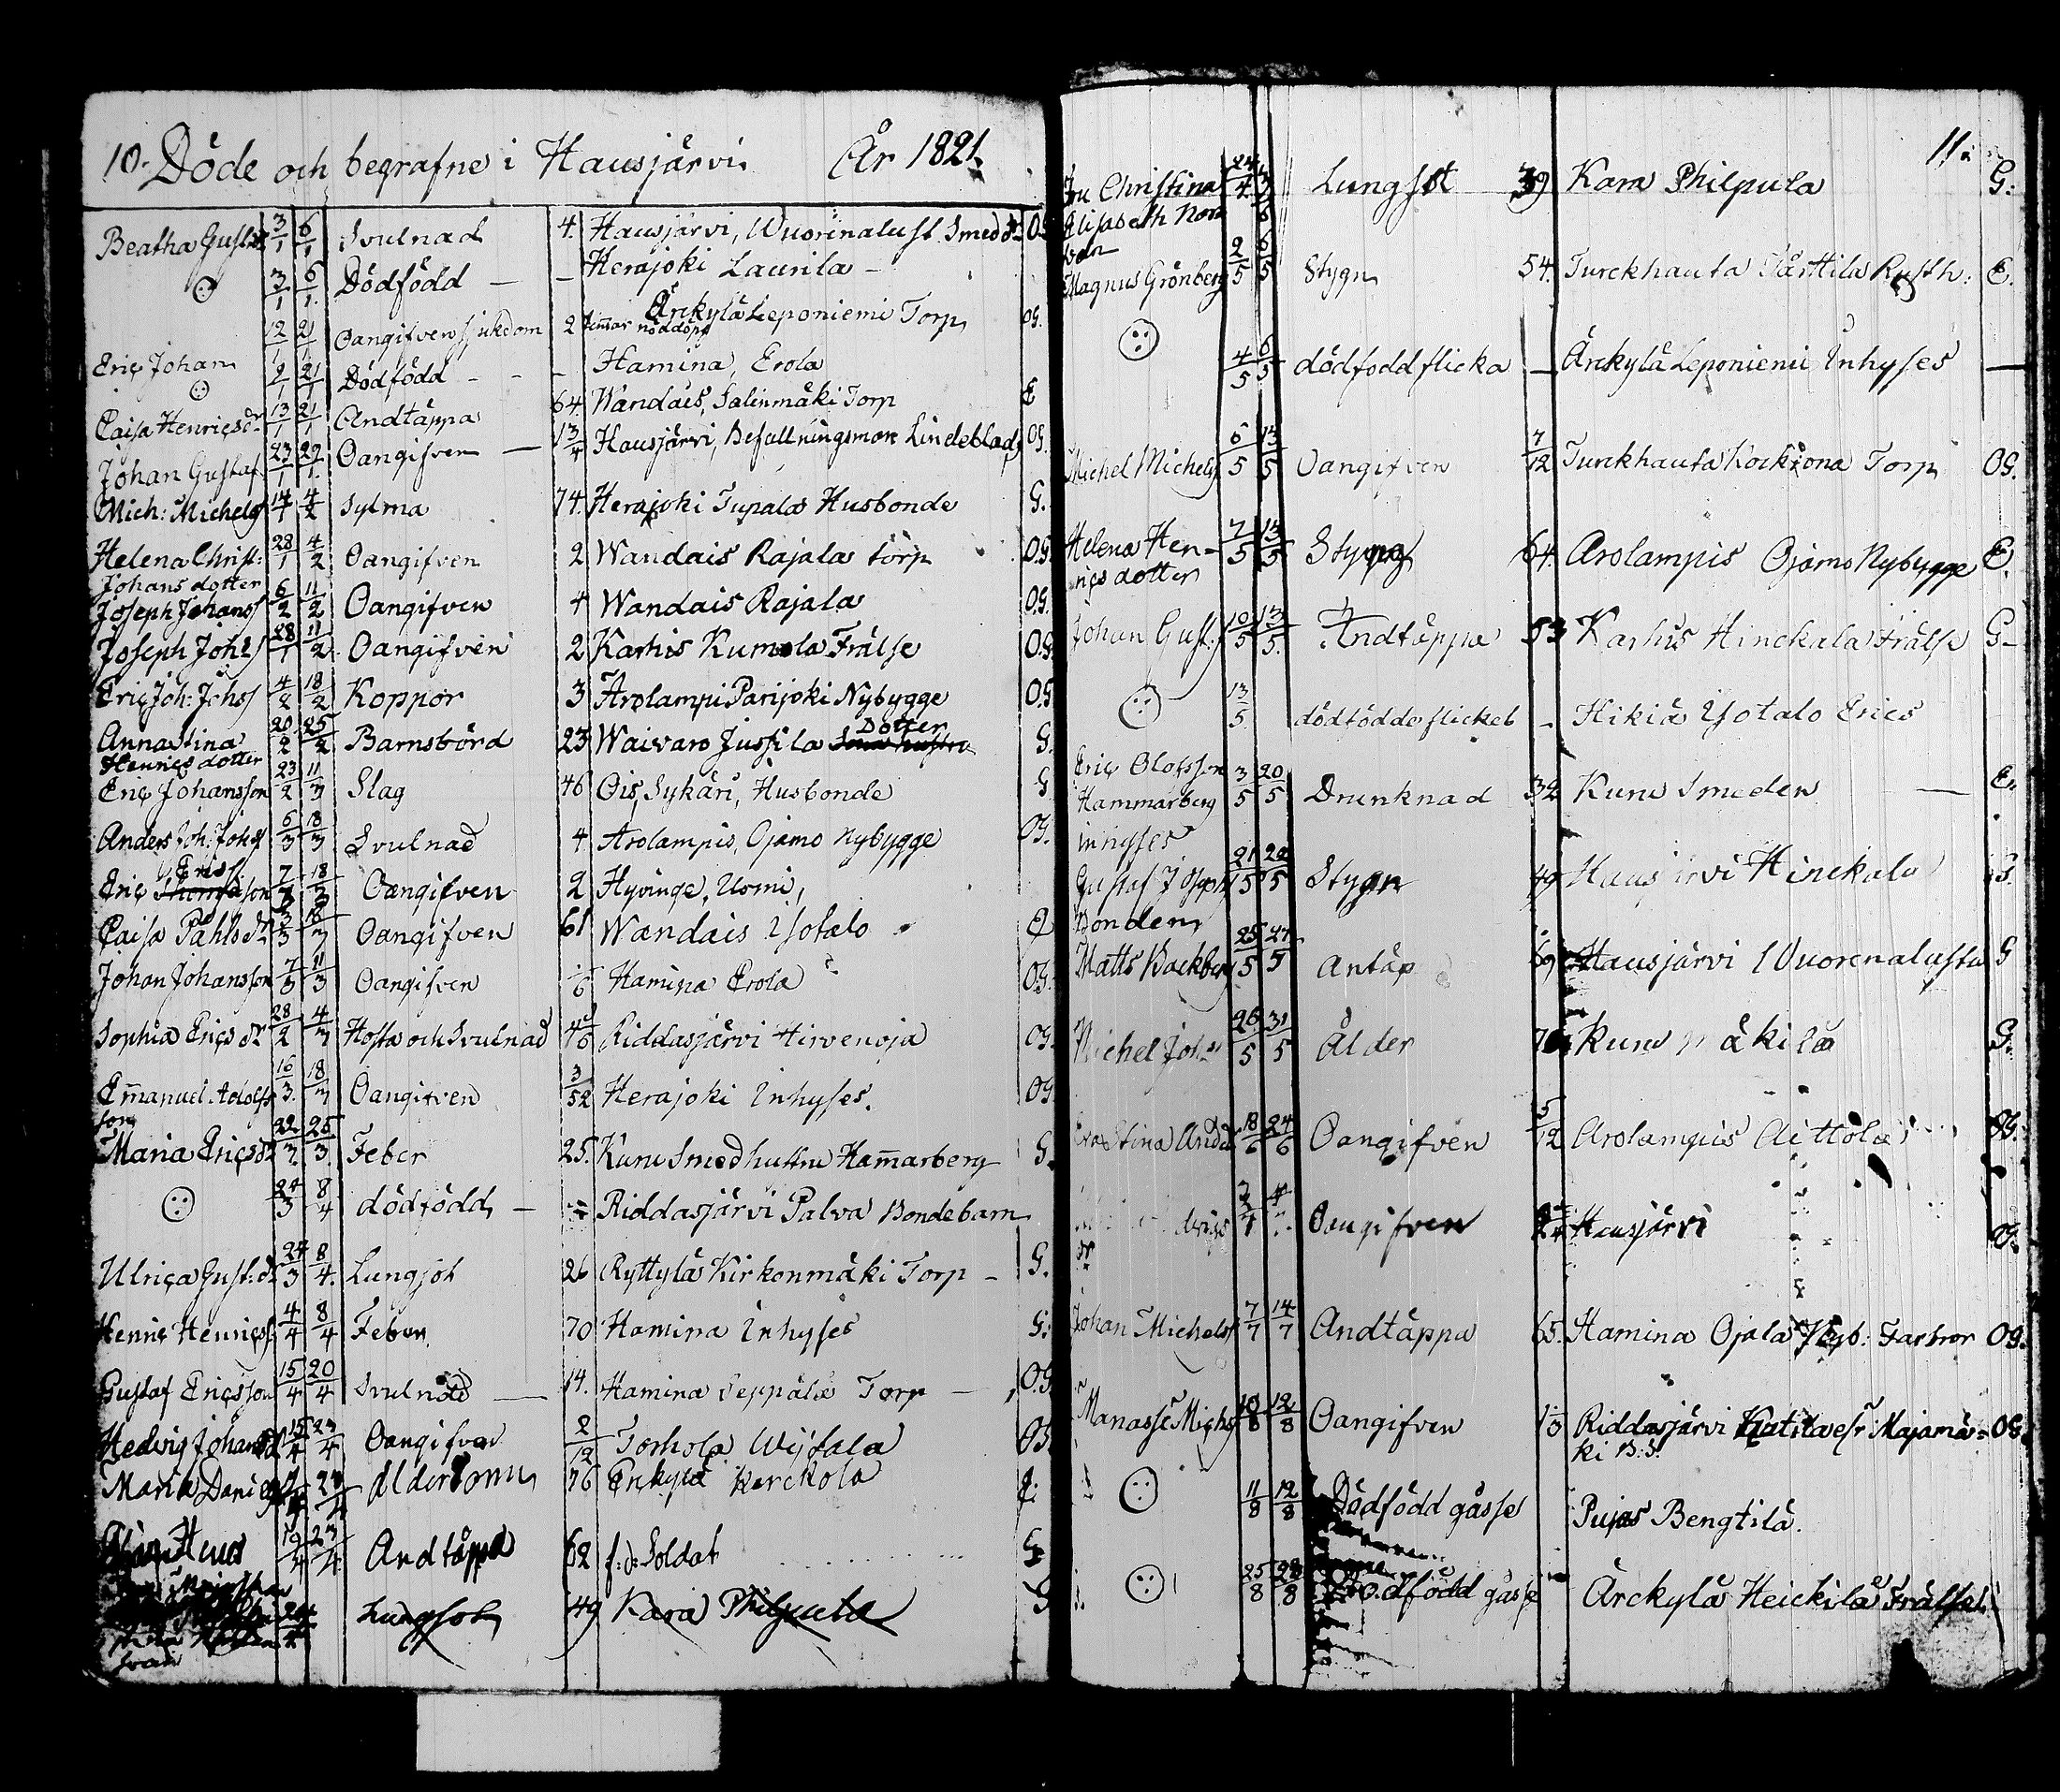 10. Döde och begrafne i Hausjärvi. År 1821.
Beatha Gust:dr 3/1 6/1 Svulnad 4. Hausjärvi, Wuorenalust. Smed dr OG
3/1 6/1 Dödfödd — — Herajoki Laurila —
12/1 21/1 Oangifven sjukdom 2 timar nöddöpt Ärkylä Leponiemi Torp OG.
Eric Johan
9/1 21/1 Dödfödd - - - Hamina, Erola
Caisa Henricsdr 13/1 21/1 Andtäppa 64 Wandais, Salinmäki Torp E
Johan Gustaf 23/1 29/1 Oangifven — 1 3/4 Hausjärvi, Befallningsman Lindeblads OG.
Mich: Michelss 14/1 4/2 Sylma 74. Herajoki Tupala Husbonde G.
Helena Christ: 28/1 4/2 Oangifven 2 Wandais Rajala torp OG.
Johans dotter
Joseph Johanss 6/2 11/2 Oangifven 4 Wandais Rajala OG.
Joseph Johs 28/1 11/2 Oangifven 2 Karhis Kumola Frälse OG
Eric Joh: Johss 4/2 18/2 Koppor 3 Arolampi Parijoki Nybygge OG
Anna Stina 20/2 25/2 Barnsbörd 23 Waivaro Jussila Dotter G.
Henrics dotter
Eric Johansson 23/2 11/3 Slag 46 Ois, Sykäri, Husbonde G
Anders Joh: Johss 6/3 18/3 Svulnad 4 Arolampis, Ojamo Nybygge OG.
Erics
Eric 7/3 18/3 Oangifven 2 Hyvinge, Usmi,
Caisa Påhlsdr 3/3 18/3 Oangifven 61 Wandais Ylötalo E
Johan Johansson 7/3 11/3 Oangifven 1/6 Hamina Erola OG.
Sophia Erics dr 28/2 4/3 Hosta och Svulnad 4 Riddasjärvi Hirvenoja OG.
Emanuel Adolfs 16/3 18/3 Oangifven 3/52 Herajoki Inhyses. OG.
son
Maria Ericsdr 22/3 25/3 Feber 25. Kuru Smedhustru Hamarberg G.
24/3 8/4 dödfödd — Riddasjärvi Palva Bondebarn
Ulrica Gust:dr 24/3 8/4 Lungsot 26 Ryttylä Kirkonmäki Torp — G.
Henric Henricss: 4/4 8/4 Feber 70 Hamina Inhyses G:
Gustaf Ericsson 15/4 20/4 Svulnad — 14. Hamina Seppälä Torp — OG
Hedvig Johansdr 15/4 23/4 Oangifven 2/12 Torhola Wijfala OG.
Maria 23/4 Ålderdomn 76 Erkylä Kerckola
19/4 23/4 Andtäppa 62 f:d: Soldat G
Lungsot 49 Kara Philpula G
11.
Fru Christina 24/4 Lungsot 39 Kara Philpula G:
Elisabeth Nord
Magnus Grönberg 2/5 6/5 Stygn 54. Turckhauta Tårttila Rusth: E.
4/5 6/5 dödfödd flicka — Ärckylä Leponiemi Inhyses —
Michel Michelss 6/5 13/5 Oangifven 7/12 Turckhauta Torp OG.
Helena Hen- 7/5 13/5 Stygn 64. Arolampis Ojamo Nybygge E.
rics dotter
Johan Gust. 10/5 13/5. Andtäppa 53 Karhis Hinckala Frälse G-
13/5 dödfödde flickeb - Hikiä Ylötalo Erics
Eric Olofsson 3/5 20/5 Drunknad 32 Kuru Smeden — E.
Hammarberg
Inhyses
Gustaf Josephs 21/5 Stygn 49 Hausjärvi Hinckala G.
Bonden
Matts Backberg 25/5 27/5 Antäp 69 Hausjärvi Wuorenalusta G
Michel Joh 26/5 31/5 Ålder Kuru Mäkilä G.
Stina Andr 18/6 24/6 Oangifven 5/12 Arolampis Aittola OG.
Oangifven Hausjärvi OG.
dr
Johan Michelss 7/7 14/7 Andtäppa 65. Hamina Ojala Nyb: Farbror OG.
Manasse Michss 10/8 12/8 Oangifven Riddasjärvi Majamä- OG.
ki
11/8 12/8 Dödfödd gåsse Pujas Bengtilä.
25/8 28/8 Dödfödd gåsse Ärckylä Heickilä Frälset